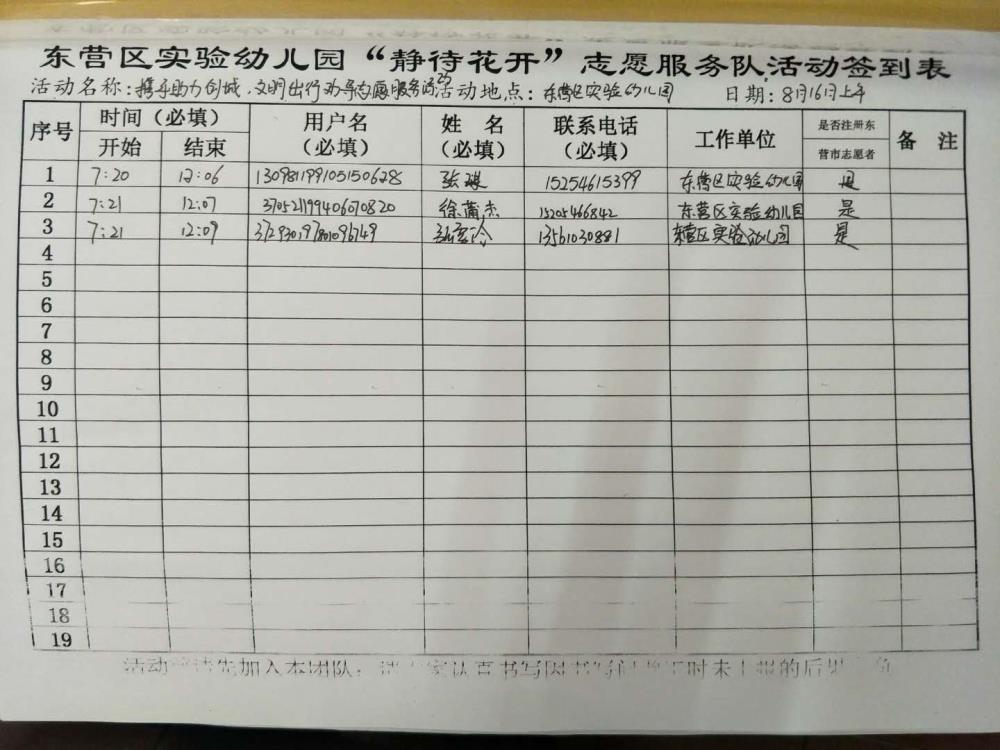 东营区实验幼儿园“静待花开”志愿服务队活动签到表
活动名称：携手助力创城，文明出行劝导志愿服务活动 25 活动地点：东营区实验幼儿园 日期：8月16日上午
序号 时间（必填） 用户名（必填） 姓 名（必填） 联系电话（必填） 工作单位 是否注册东营市志愿者 备 注
开始 结束
1 7:20 12:06 15254615399 东营区实验幼儿园 是
2 7:21 12:07 370521199406070820 15205466842 东营区实验幼儿园 是
3 7:21 12:09 13561030881 东营区实验幼儿园 是
4
5
6
7
8
9
10
11
12
13
14
15
16
17
18
19
活动 先加入本团队